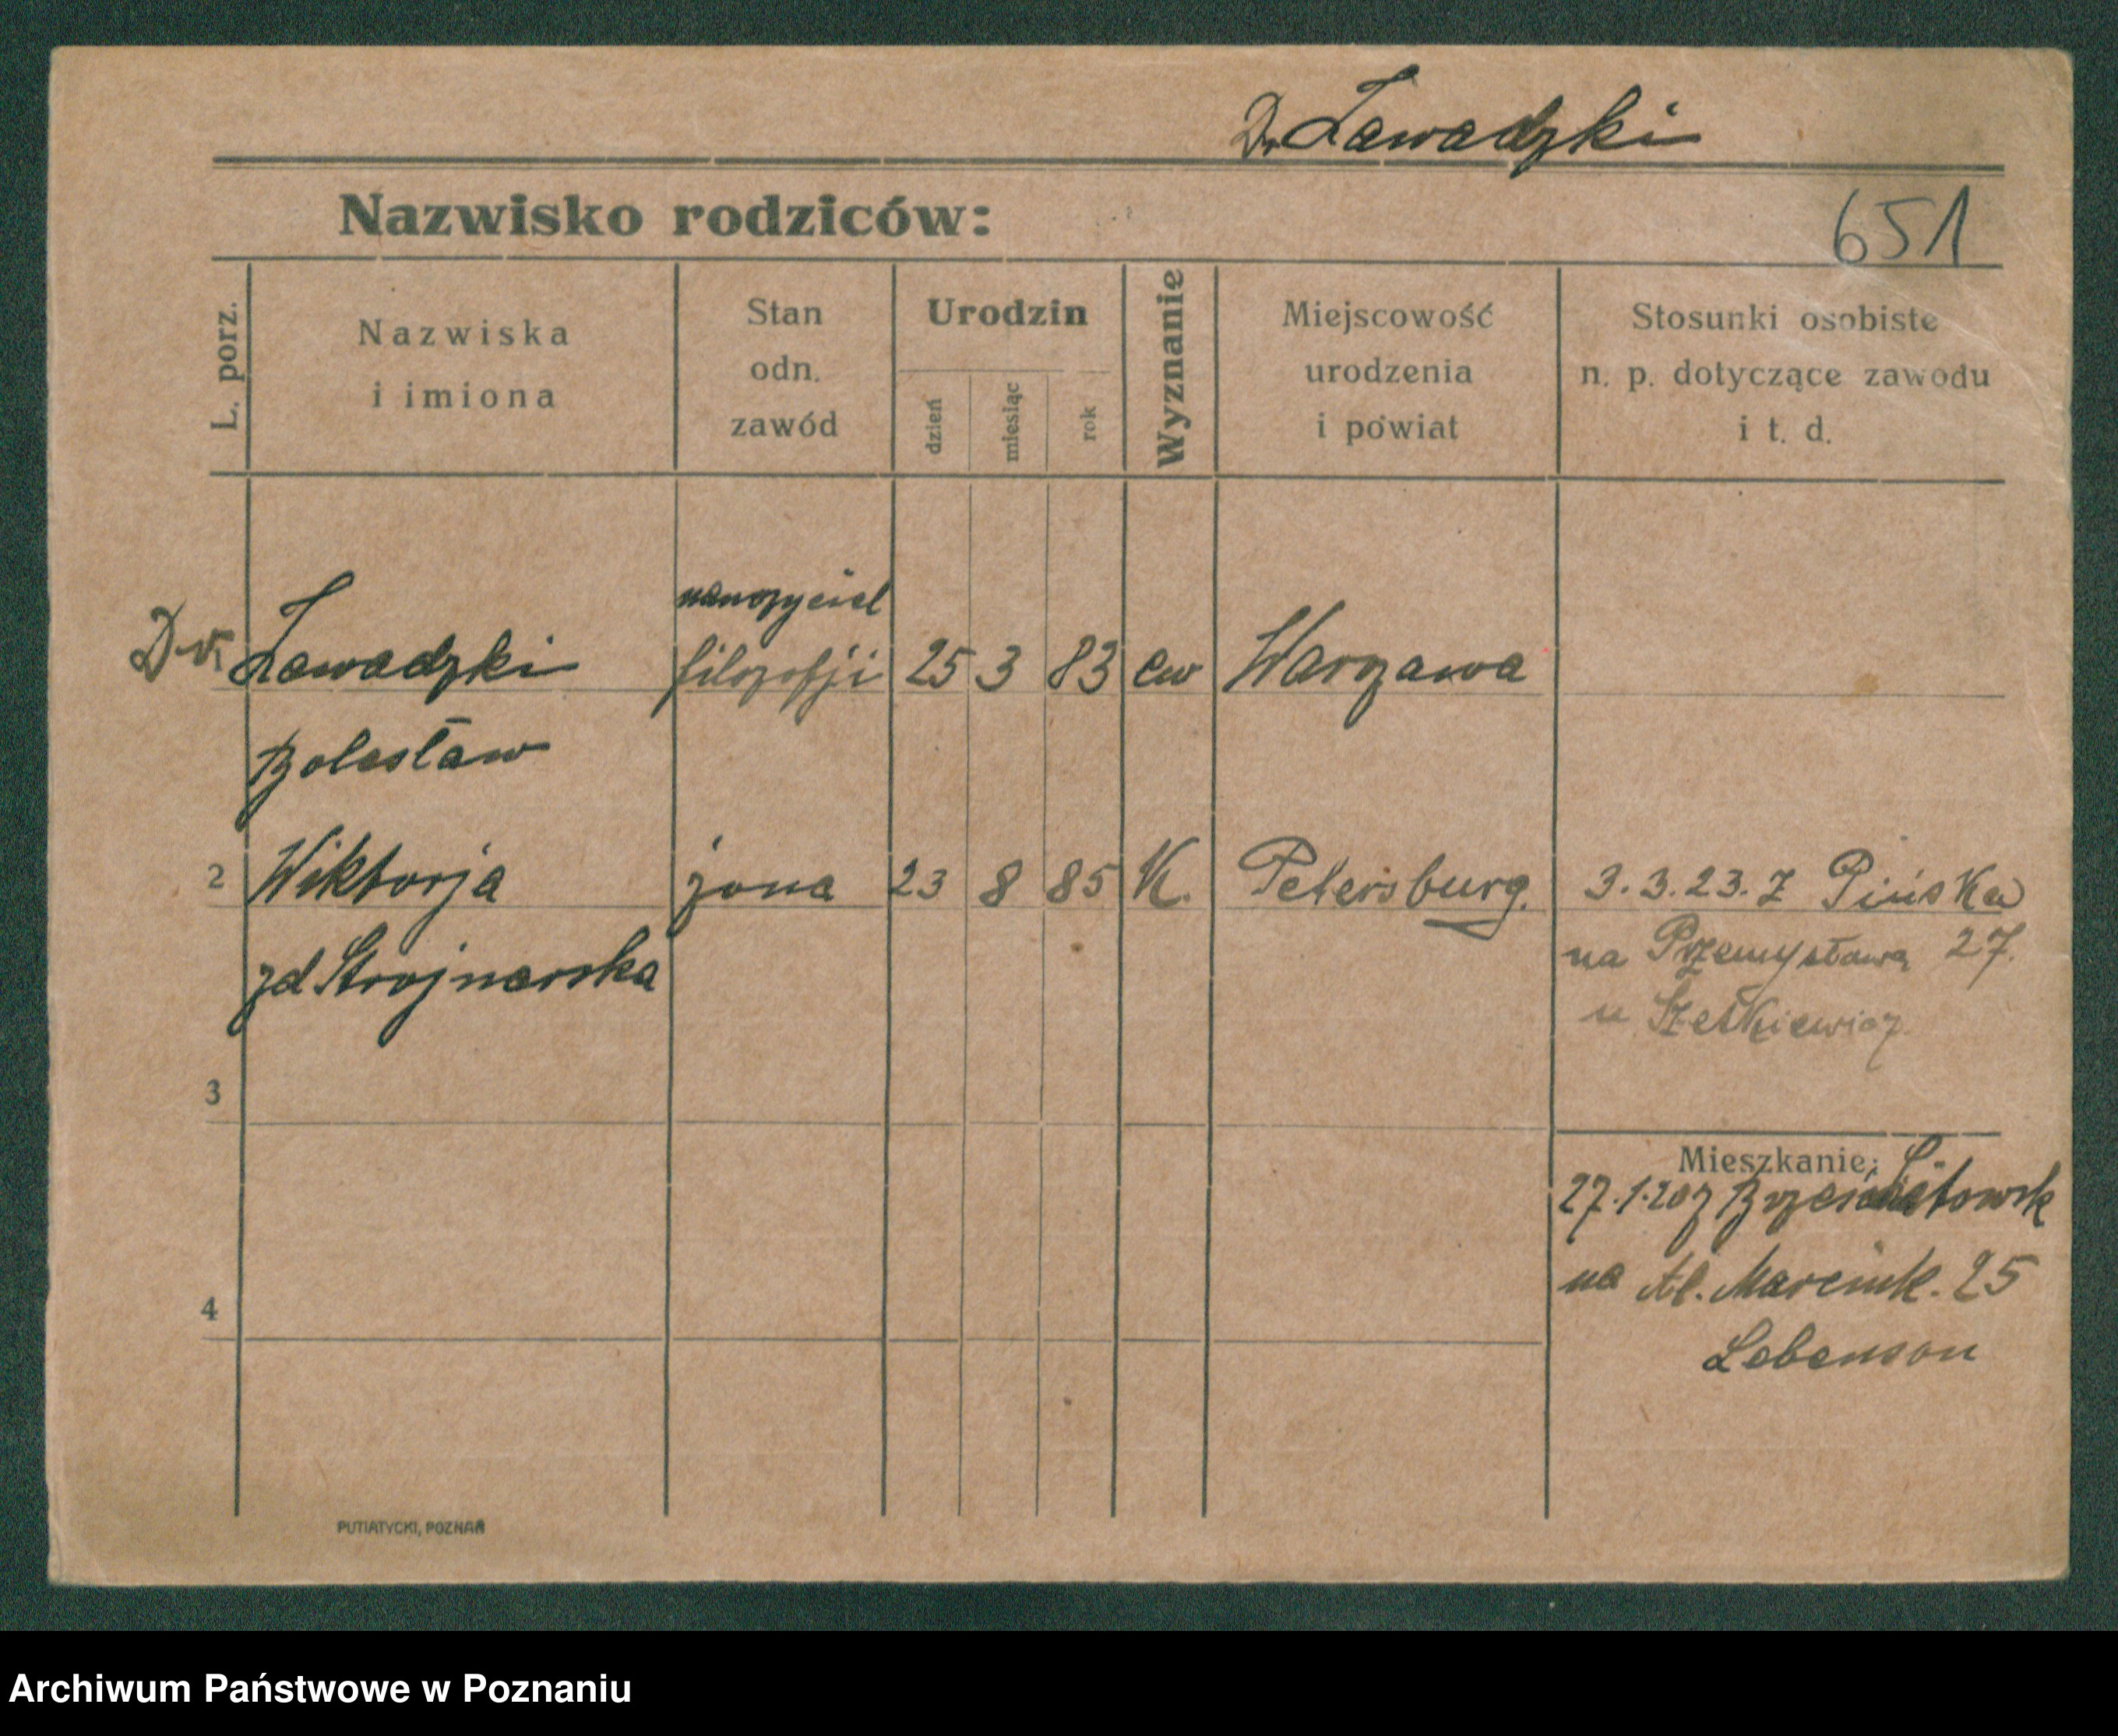 Dr. Zawadzki
Nazwisko rodziców:
651
L. porz.
Nazwiska
i imiona
Stan
odn.
zawód
Urodzin
dzień
miesiąc
rok
Wyznanie
Miejscowość
urodzenia
i powiat
Stosunki osobiste
n. p. dotyczące zawodu
i t. d.
nauczyciel
Dr. Zawadzki filozofji 25 3 83 ew Warszawa
Bolesław
2 Wiktorja żona 23 8 85 K. Petersburg. 3.3.23. z Pińska
na Przemysława 27.
zd Strojnarska
u
3
Mieszkanie:
27.1.20 z Brześć Litowsk
4
na Al. Marcink. 25
Lebenson
PUTIATYCKI, POZNAŃ
Archiwum Państwowe w Poznaniu